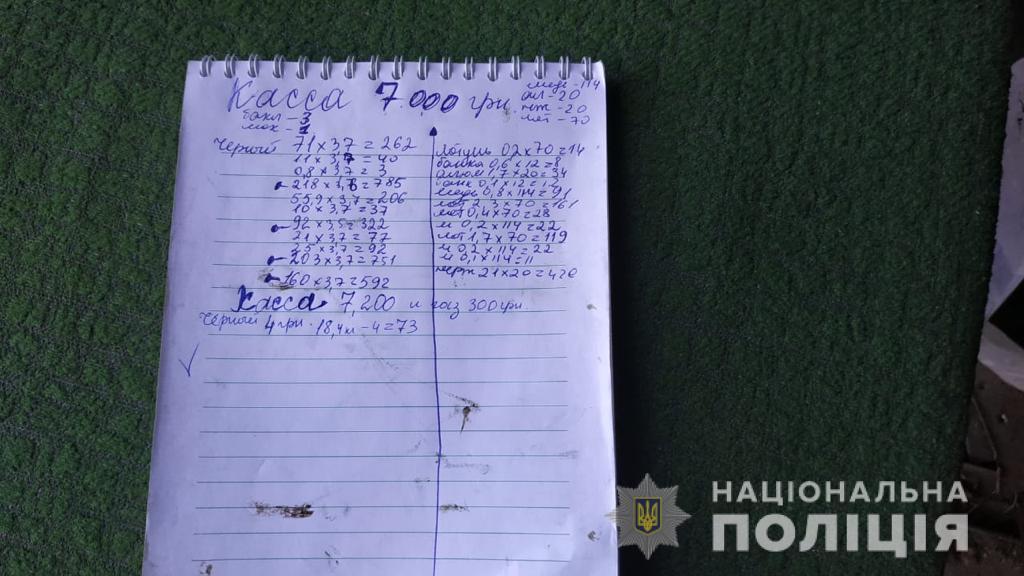 Касса 7.000 грн
медь - 114
ал - 20
нж - 20
лат - 70
бакл - 3
Черный 71 x 3,7 = 262
11 x 3,7 = 40
0,8 x 3,7 = 3
218 x 3,6 = 785
55,9 x 3,7 = 206
10 x 3,7 = 37
92 x 3,5 = 322
21 x 3,7 = 77
25 x 3,7 = 92
203 x 3,7 = 751
160 x 3,7 = 592
0,2 x 70 = 14
банка 0,6 x 12 = 8
алюм 1,7 x 20 = 34
банк 0,1 x 12 = 1,2
медь 0,8 x 114 = 91
лат 2,3 x 70 = 161
лат 0,4 x 70 = 28
м 0,2 x 114 = 22
лат 1,7 x 70 = 119
м 0,2 x 114 = 22
м 0,1 x 114 = 11
нерж 21 x 20 = 420
Касса 7,200 и газ 300 грн
Черный 4 грн. 18,4 кг - 4 = 73
НАЦІОНАЛЬНА
ПОЛІЦІЯ